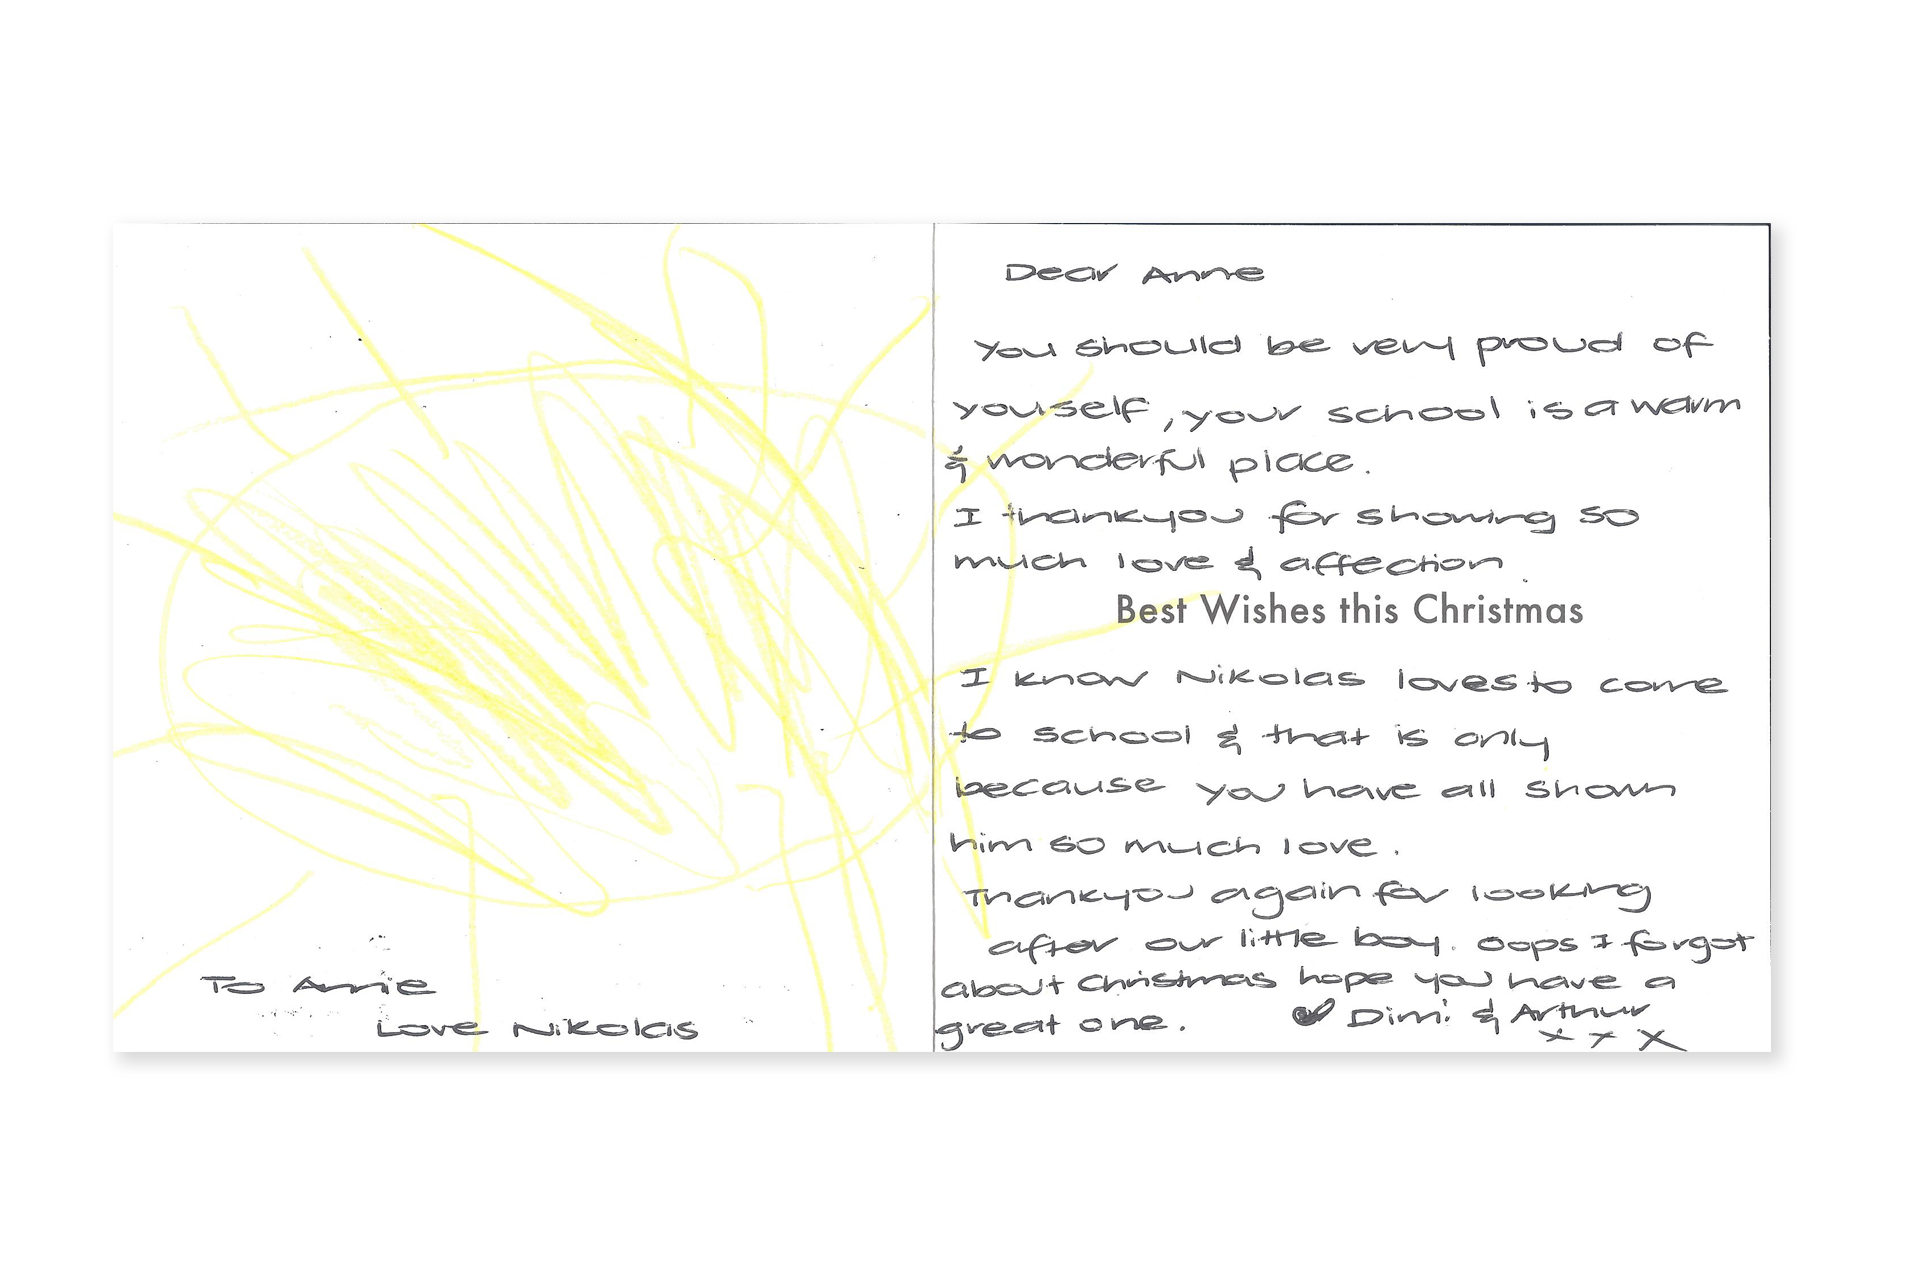 To Annie
Love Nikolas
Dear Anne
You should be very proud of
youself, your school is a warm
& wonderful place.
I thankyou for showing so
much love & affection.
Best Wishes this Christmas
I know Nikolas loves to come
to school & that is only
because you have all shown
him so much love.
Thankyou again for looking
after our little boy. Oops I forgot
about Christmas hope you have a
great one. Dimi & Arthur
x x x